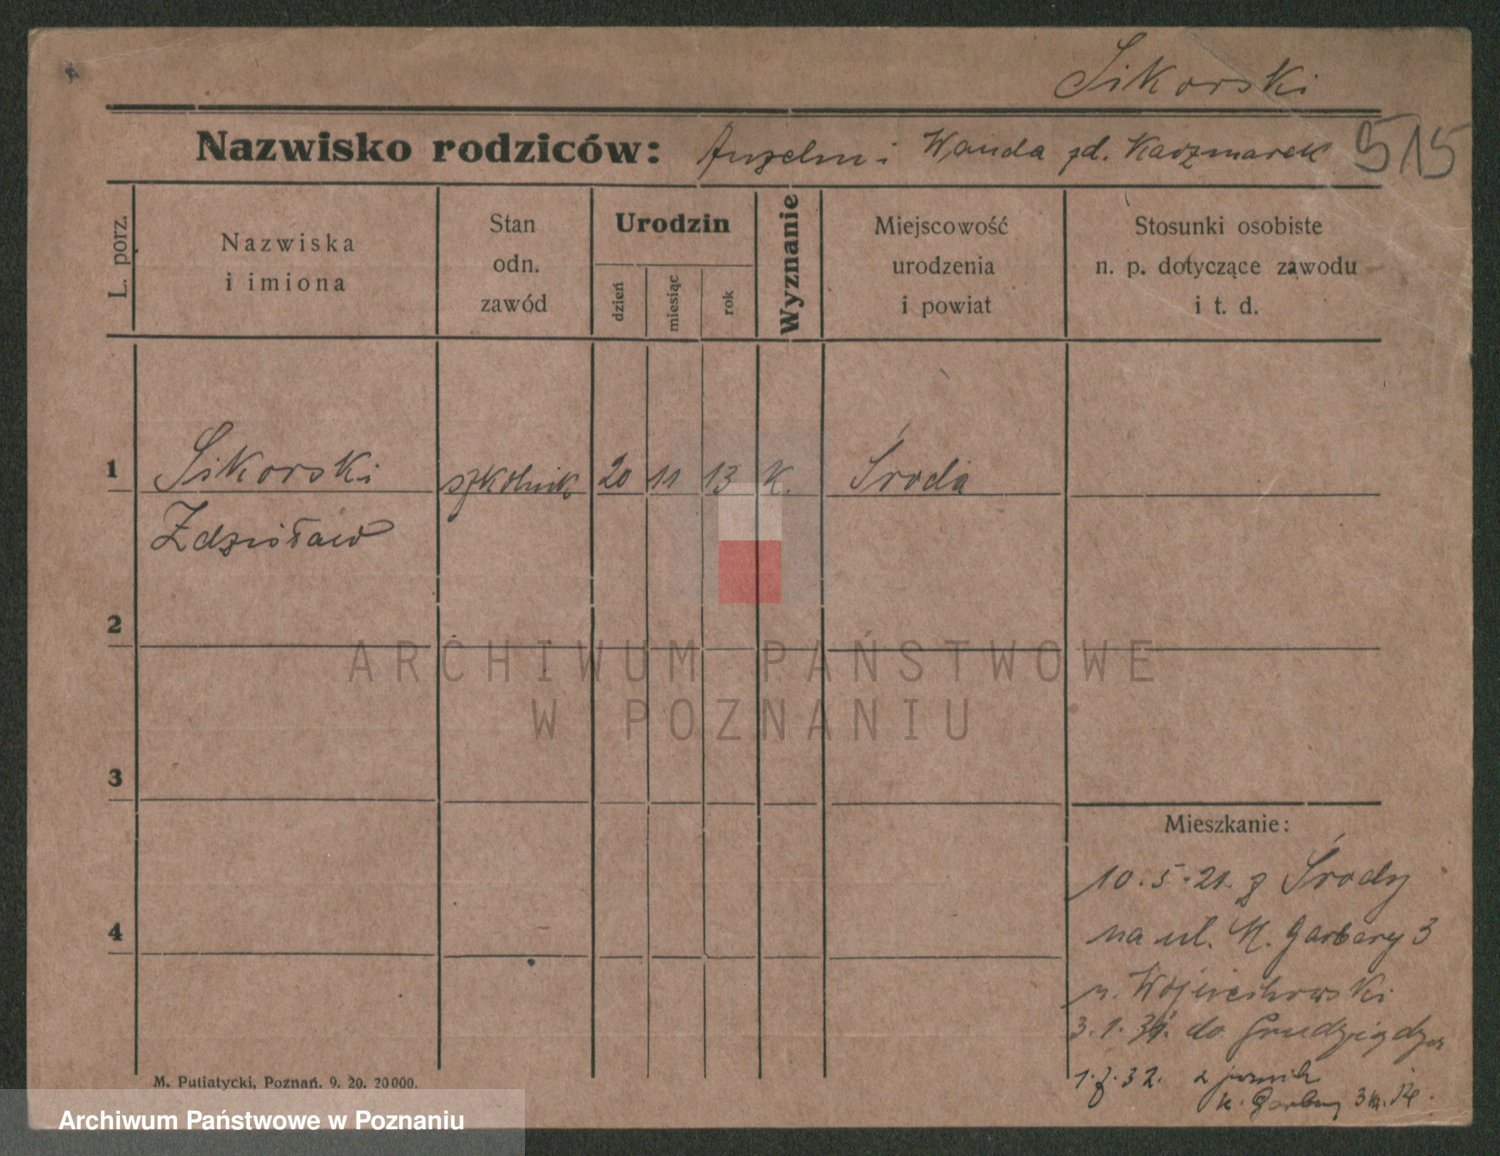 Sikorski
Nazwisko rodziców: Anzelm i Wanda zd. Kaczmarek 515
L. porz.
Nazwiska
i imiona
Stan
odn.
zawód
Urodzin
dzień
miesiąc
rok
Wyznanie
Miejscowość
urodzenia
i powiat
Stosunki osobiste
n. p. dotyczące zawodu
i t. d.
1 Sikorski szkolnik 20 11 13 k. Środa
Zdzisław
2
3
4
Mieszkanie:
10.5.21. z Środy
na ul. M. Garbary 3
u. Wojciechowski
3.1.31. do Grudziądza
1.7.32.
M. Garbary 3
M. Putiatycki, Poznań. 9. 20. 20000.
ARCHIWUM PAŃSTWOWE
W POZNANIU
Archiwum Państwowe w Poznaniu